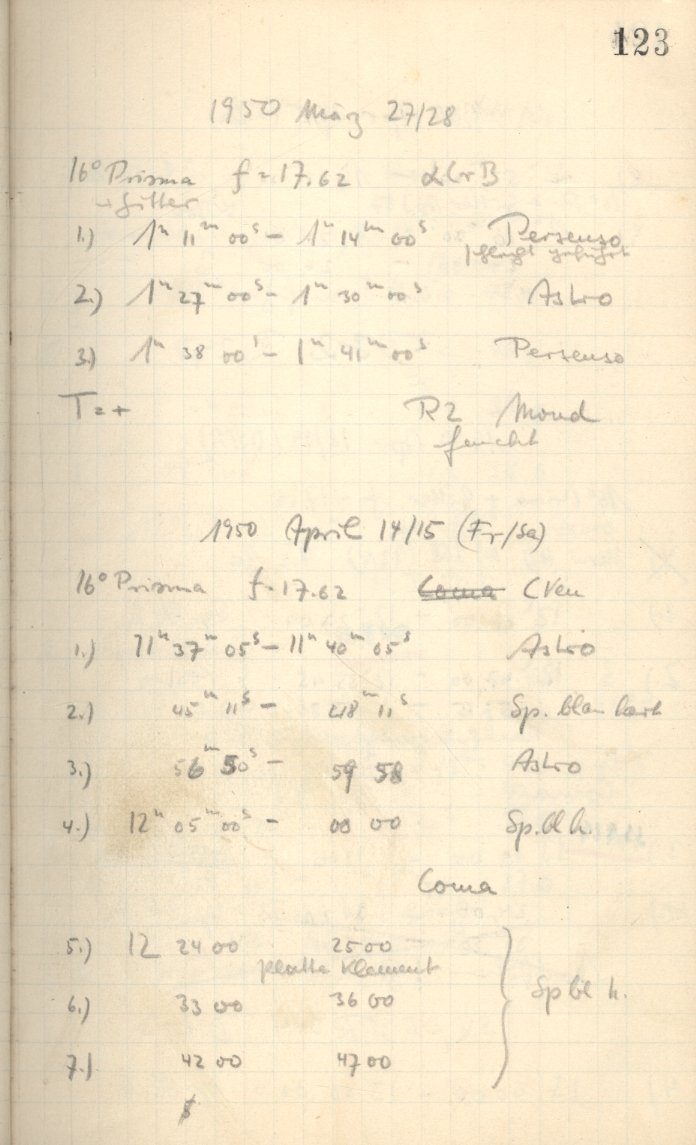 123
1950 März 27/28
16° Prisma f=17.62 α CrB
+ Gitter
1.) 1ʰ 11ᵐ 00ˢ – 1ʰ 14ᵐ 00ˢ Persenso
schlecht geführt
2.) 1ʰ 27ᵐ 00ˢ – 1ʰ 30ᵐ 00ˢ Astro
3.) 1ʰ 38 00ˢ – 1ʰ 41ᵐ 00ˢ Persenso
T=+ R2 Mond
feucht
1950 April 14/15 (Fr/Sa)
16° Prisma f=17.62 Coma CVen
1.) 11ʰ 37ᵐ 05ˢ – 11ʰ 40ᵐ 05ˢ Astro
2.) 45ᵐ 11ˢ – 48ᵐ 11ˢ Sp. blau hart
3.) 56ᵐ 50ˢ – 59 58 Astro
4.) 12ʰ 05ᵐ 00ˢ – 08 00 Sp. bl h.
Coma
5.) 12 24 00 25 00
Platte klemmt
6.) 33 00 36 00 Sp bl h.
7.) 42 00 47 00